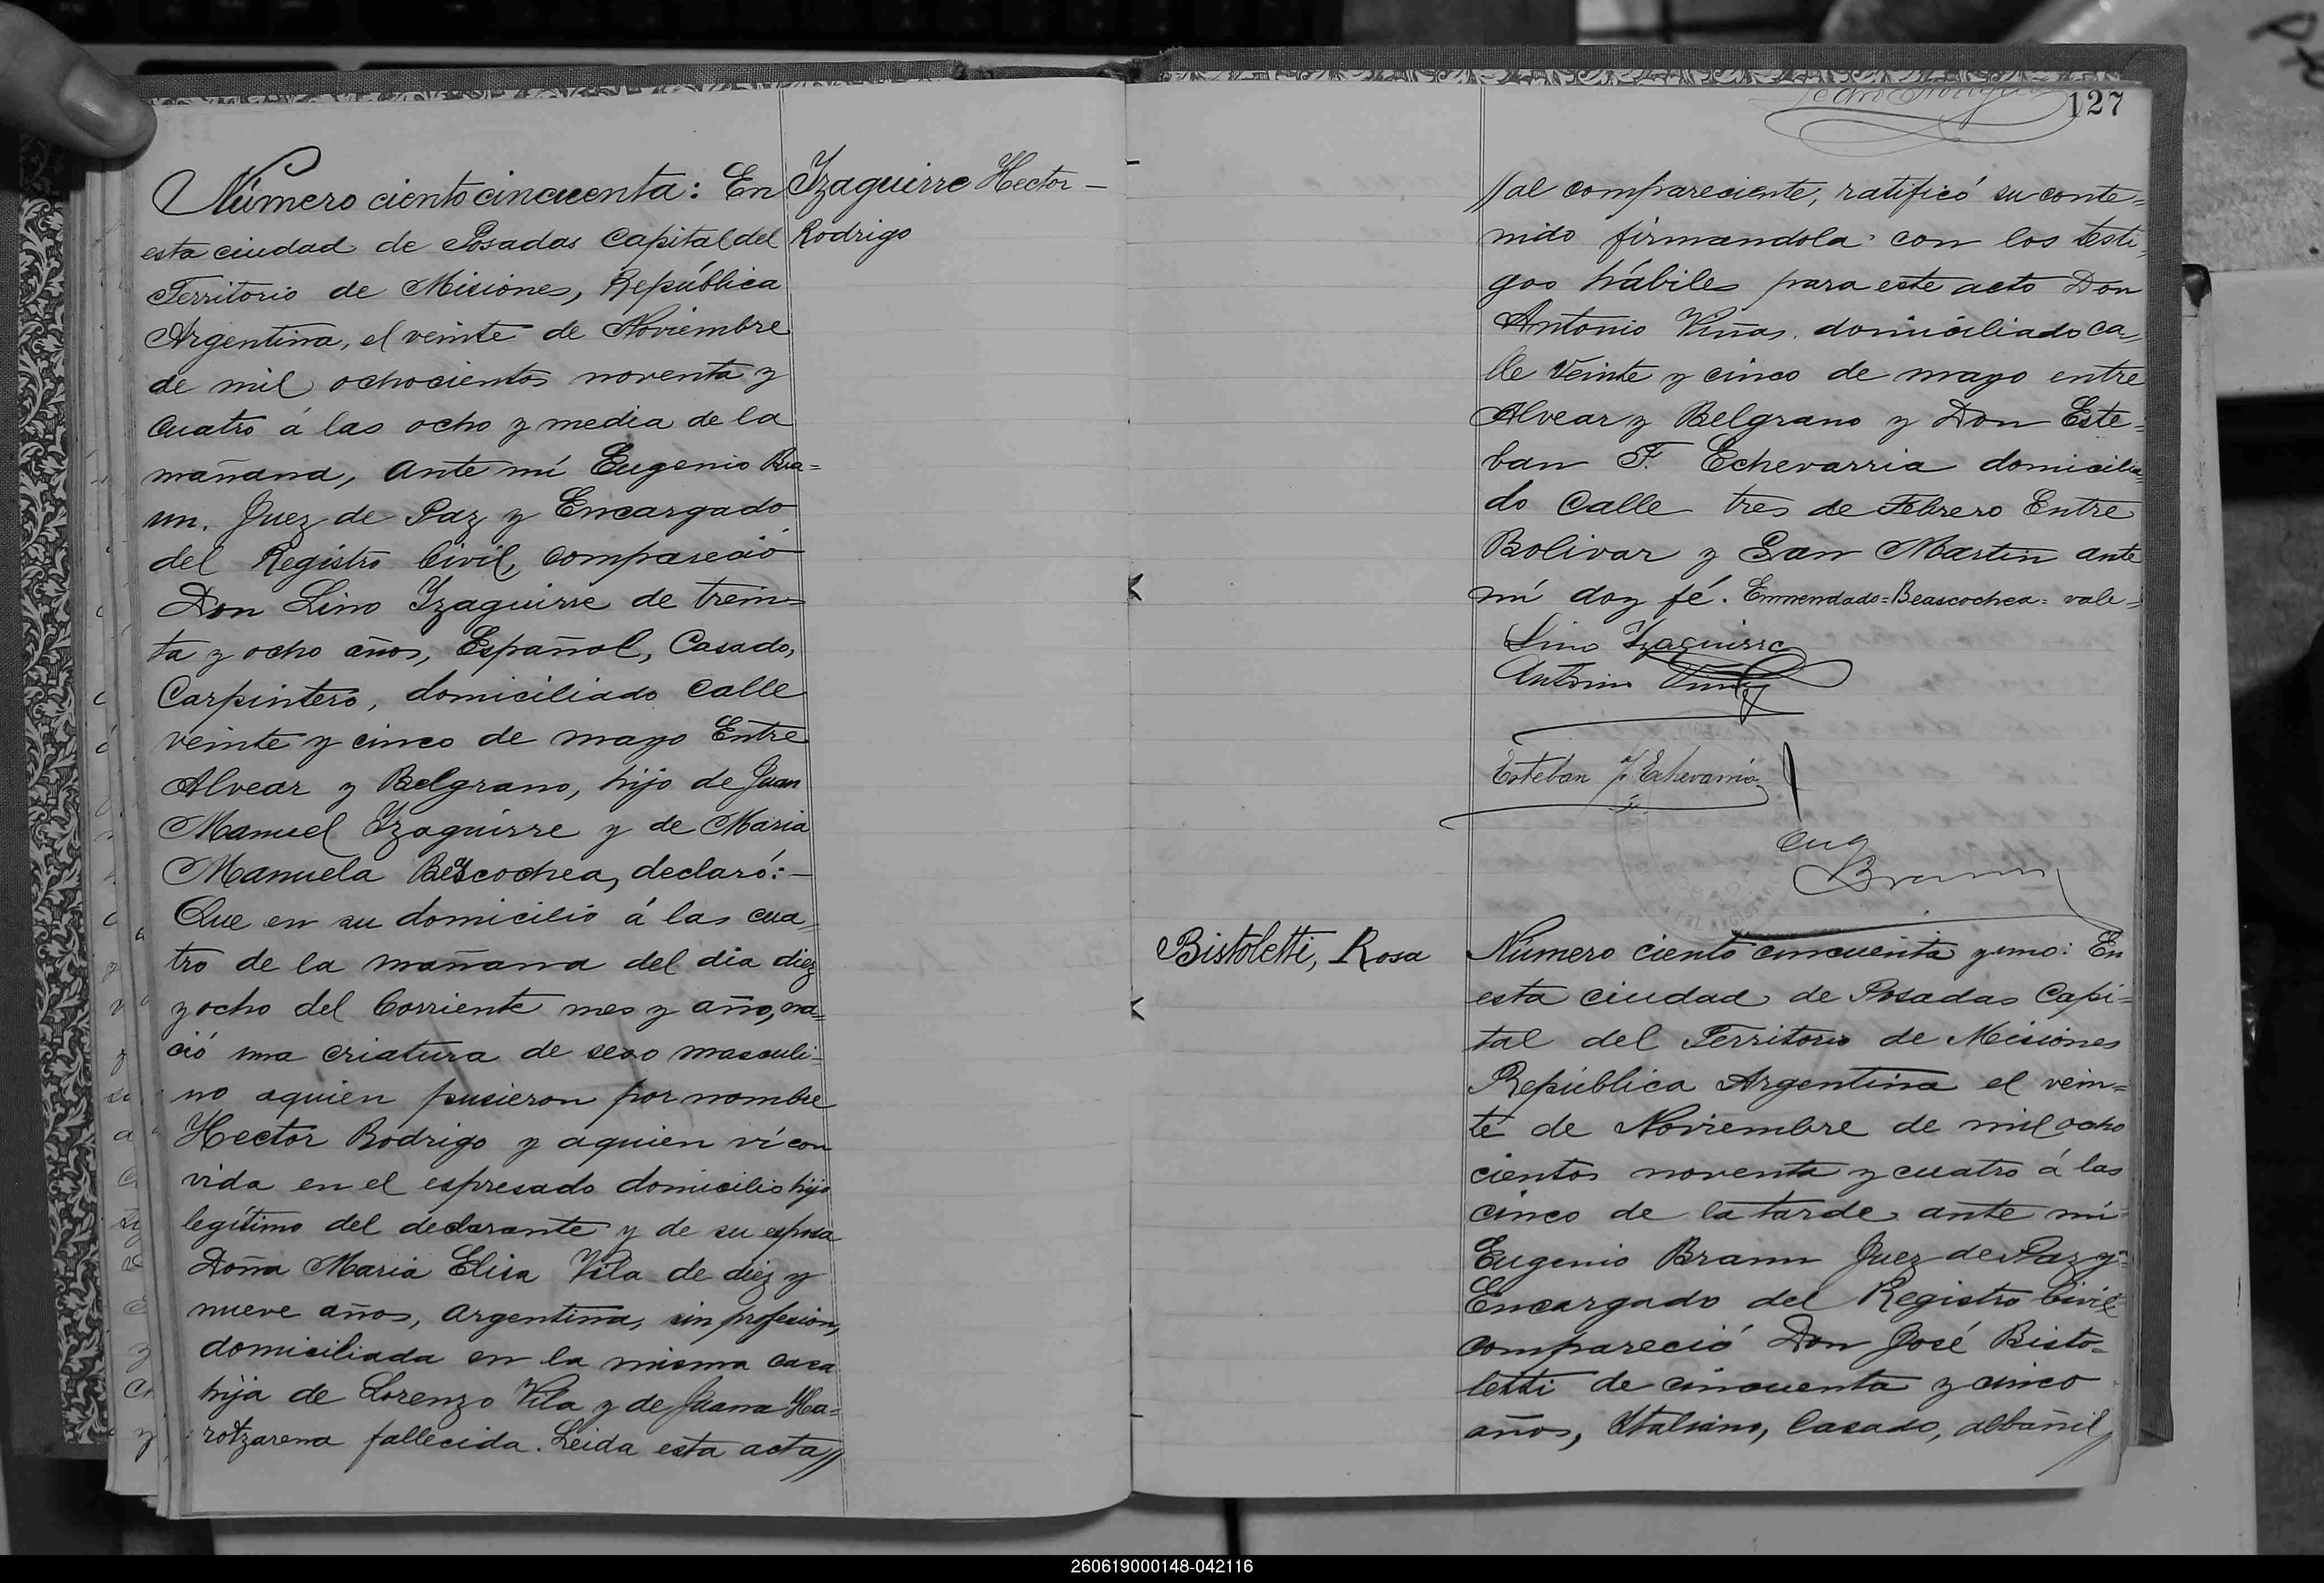 Número ciento cincuenta: En
esta ciudad de Posadas Capital del
Territorio de Misiones, República
Argentina, el veinte de Noviembre
de mil ochocientos noventa y
cuatro á las ocho y media de la
mañana, ante mí Eugenio Bra=
un, Juez de Paz y Encargado
del Registro Civil, compareció
Don Lino Yzaguirre de trein=
ta y ocho años, Español, Casado,
Carpintero, domiciliado Calle
veinte y cinco de mayo Entre
Alvear y Belgrano, hijo de Juan
Manuel Yzaguirre y de Maria
Manuela Beascochea, declaró:—
Que en su domicilio á las cua=
tro de la mañana del dia diez
y ocho del Corriente mes y año, na=
ció una criatura de sexo masculi=
no aquien pusieron por nombre
Hector Rodrigo y aquien ví con
vida en el espresado domicilio hijo
legítimo del declarante y de su esposa
Doña Maria Elisa Vila de diez y
nueve años, Argentina, sin profesion,
domiciliada en la misma casa
hija de Lorenzo Vila y de Juana
fallecida. Leida esta acta//
Yzaguirre Hector —
Rodrigo
127
//al compareciente, ratificó su conte=
nido firmandola con los testi=
gos hábiles para este acto Don
Antonio Viñas, domiciliado ca=
lle Veinte y cinco de mayo entre
Alvear y Belgrano y Don Este=
ban F. Echevarria domicilia=
do Calle tres de Febrero Entre
Bolivar y San Martin ante
mí doy fé. Enmendado=Beascochea=vale=
Lino Yzaguirre
Antonio Viñas
Esteban F Echevarria
Eug
Braun
Bistoletti, Rosa
Número ciento cincuenta y uno: En
esta ciudad de Posadas Capi=
tal del Territorio de Misiones
República Argentina el vein=
te de Noviembre de mil ocho
cientos noventa y cuatro á las
cinco de la tarde ante mí
Eugenio Braun Juez de Paz y
Encargado del Registro Civil
compareció Don José Bisto=
letti de cincuenta y cinco
años, Italiano, Casado, albañil,
260619000148-042116